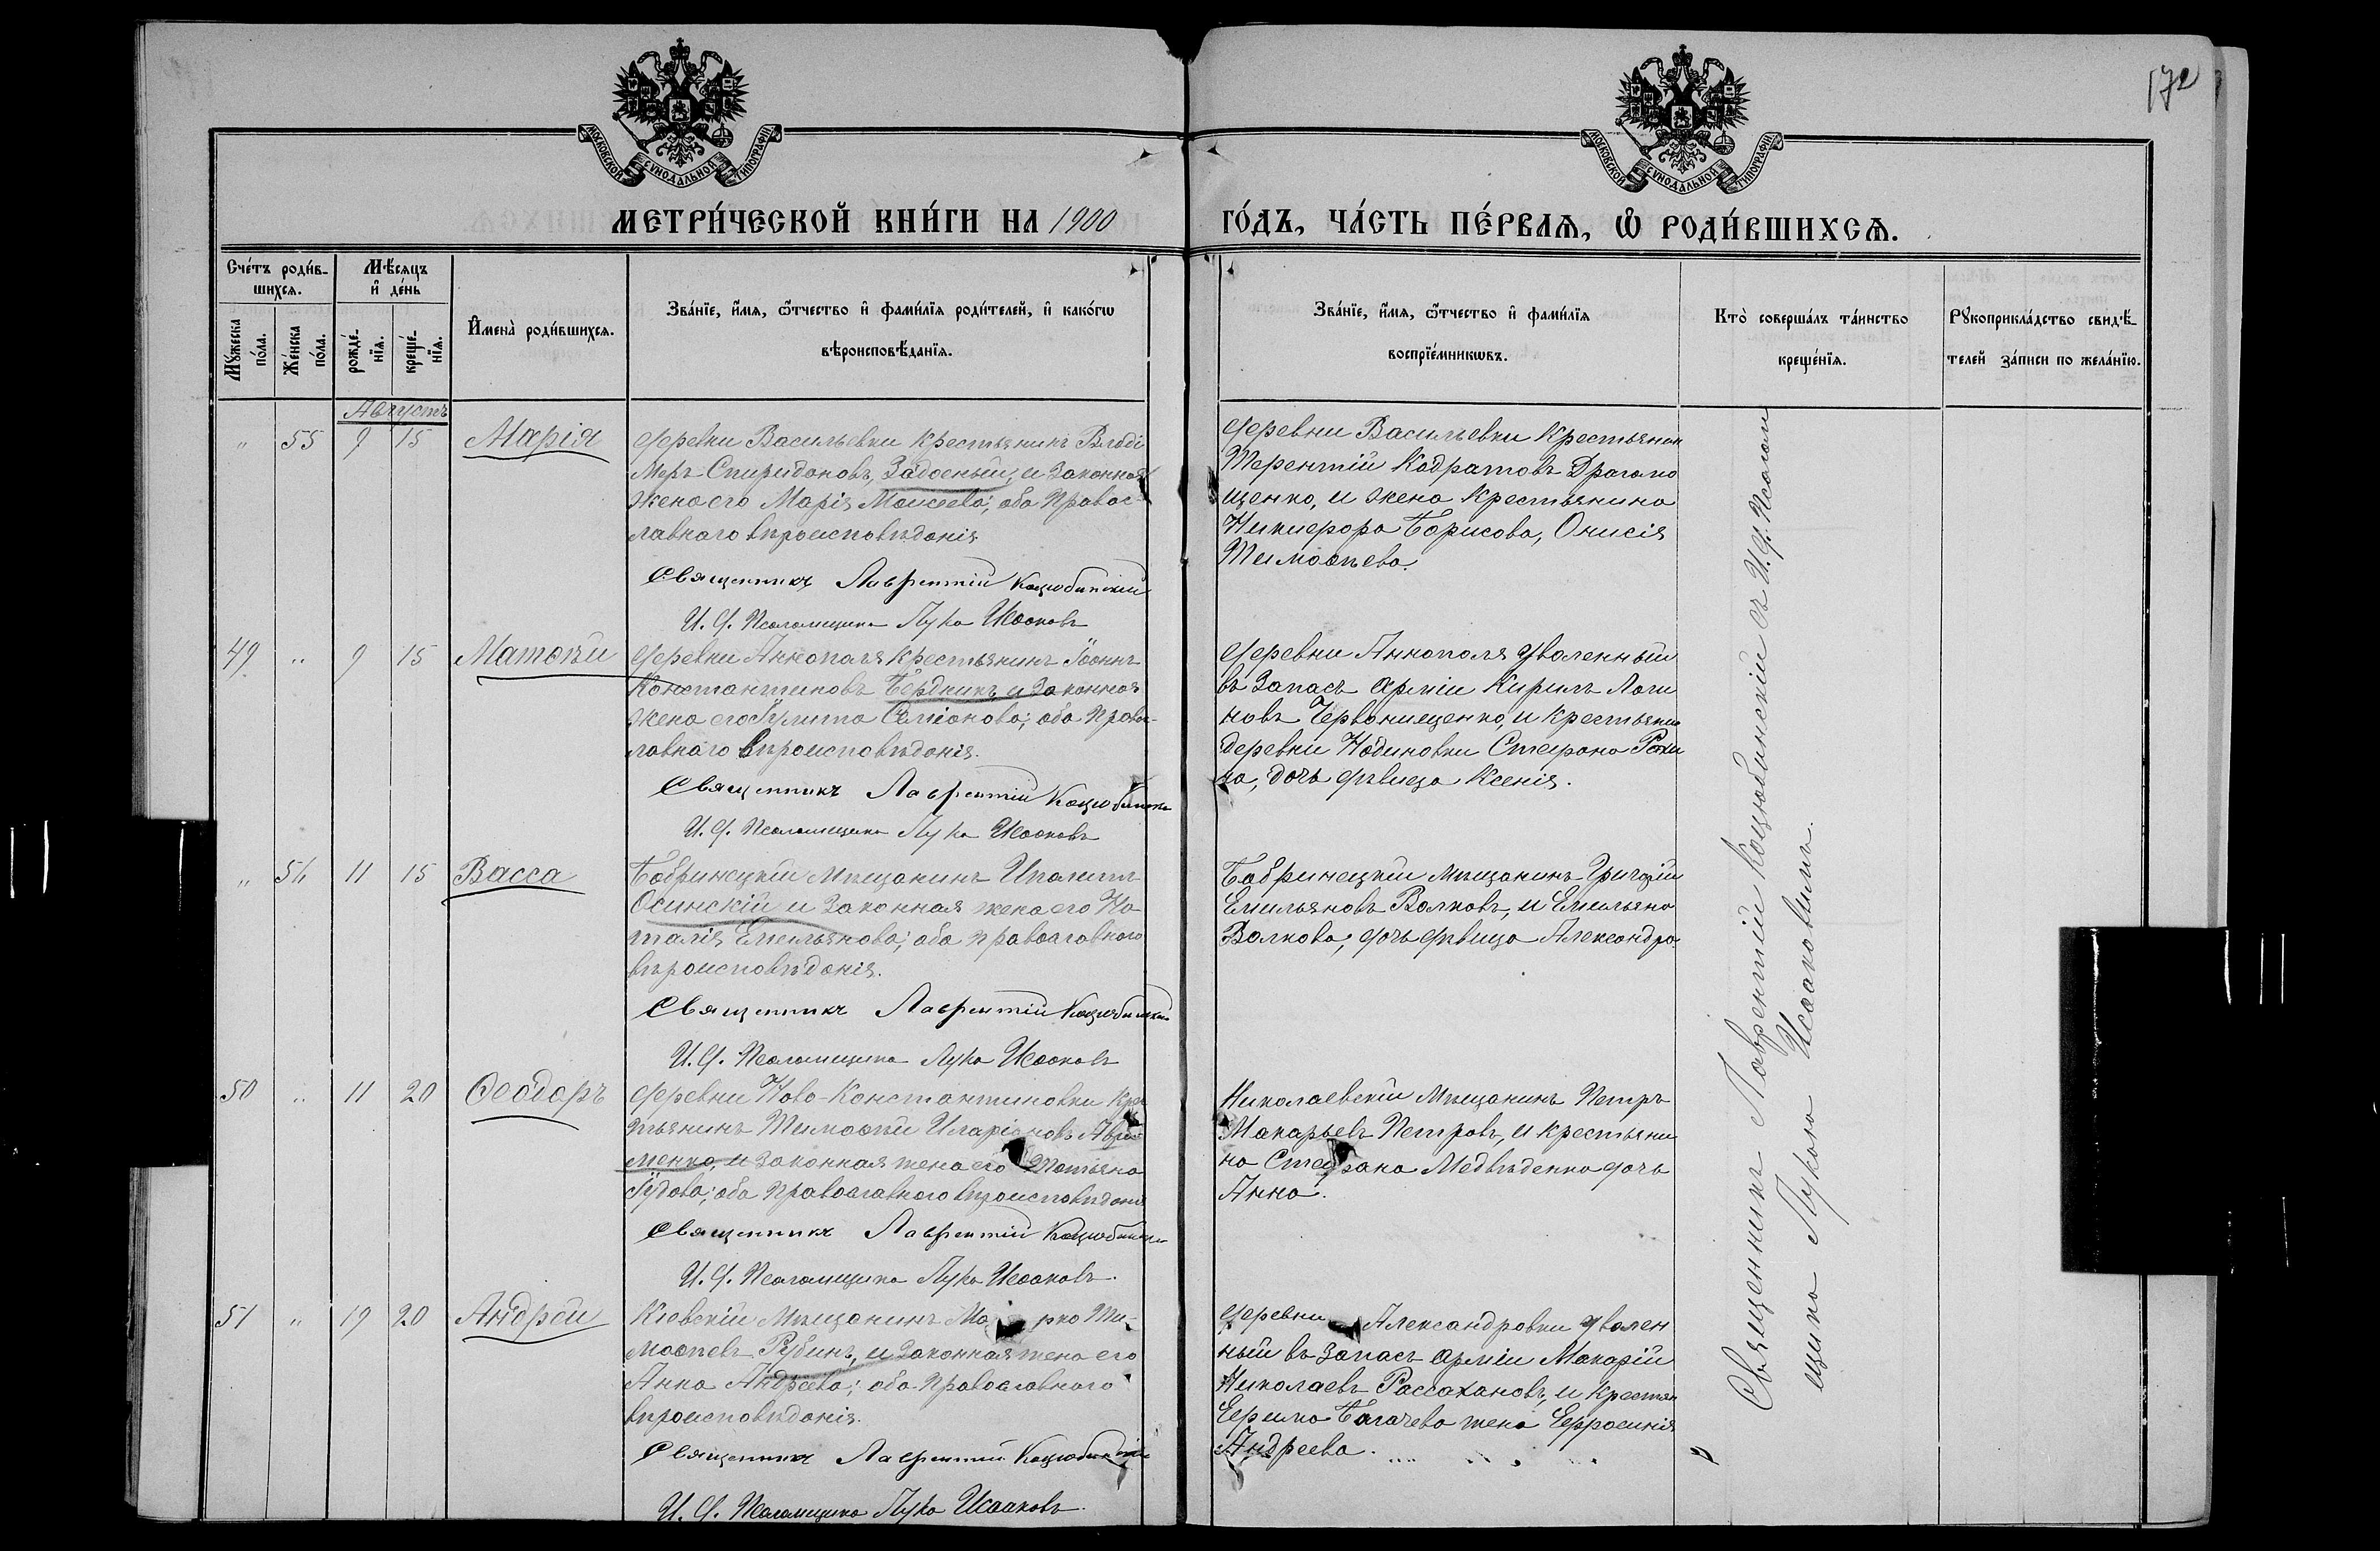 172
МОСКОВСКОЙ СУНОДАЛЬНОЙ ТИПОГРАФІИ
МОСКОВСКОЙ СУНОДАЛЬНОЙ ТИПОГРАФІИ
МЕТРИ́ЧЕСКОЙ КНИ́ГИ НА 1900
ГО́ДЪ, ЧА́СТЬ ПЕ́РВАѦ, Ѡ҆ РОДИ́ВШИХСѦ.
Сче́тъ роди́в-
шихсѧ.
Мꙋ́жеска по́ла.
Же́нска по́ла.
Мѣ́сѧцъ
и҆ де́нь
рожде́-
нїѧ.
креще́-
нїѧ.
И҆мена̀ роди́вшихсѧ.
Зва́нїе, и҆́мѧ, ѻ҆́тчество и҆ фами́лїѧ роди́телей, и҆ како́гѡ
вѣроисповѣ́данїѧ.
Зва́нїе, и҆́мѧ, ѻ҆́тчество и҆ фами́лїѧ
воспрїе́мникѡвъ.
Кто̀ соверша́лъ та́инство
креще́нїѧ.
Рꙋкоприкла́дство свидѣ́-
телей за́писи по жела́нїю.
Августъ
„ 55 9 15 Марія
деревни Васильевки крестьянинъ Влади
меръ Спиридоновъ, Задоеный, и законная
жена его Марія Моисеева; оба Правос-
лавнаго вѣроисповѣданія
Священникъ Лаврентій Коцюбинскій
И. д. Псаломщика Лука Исааковъ
деревни Васильевки крестьянин
Терентій Кадратовъ Драгапо
щенко, и жена крестьянина
Никифора Борисова, Онисія
Тимофѣева.
49 „ 9 15 Матѳѣй
деревни Аннополя крестьянинъ Іоаннъ
Константиновъ Бердникъ, и законная
жена его Гулита Симіонова; оба Правос-
лавнаго вѣроисповѣданія.
Священникъ Лаврентій Коцюбинскі
И. д. Псаломщика Лука Исааковъ
деревни Аннополя уволенный
въ запасъ арміи Кирилъ Логи
новъ Червонищенко, и крестьянин
деревни Надиновки Стефана
за, дочь дѣвица Ксенія.
„ 56 11 15 Васса
Бобринецкій мѣщанинъ Ипалитъ
Осинскій и законная жена его На-
талія Емельянова; оба православнаго
вѣроисповѣданія.
Священникъ Лаврентій Коцюбинскі
И. д. Псаломщика Лука Исааковъ
Бобринецкій мѣщанинъ Григорій
Емельяновъ Волковъ, и Емельяна
Волкова, дочь дѣвица Александра
50 „ 11 20 Ѳеодоръ
деревни Ново-Константиновки крес
тьянинъ Тимоѳѣй Иларіоновъ Авра
менко, и законная жена его Татьяна
Гудова; оба Православнаго вѣроисповѣдані
Священникъ Лаврентій Коцюбинскі
И. д. Псаломщика Лука Исааковъ.
Николаевскій мѣщанинъ Петръ
Макарьевъ Петровъ, и крестьяни
на Стефана Медвѣденко дочь
Анна.
51 „ 19 20 Андрей
Кіевскій мѣщанинъ Ма рко Ти-
моѳѣевъ Рубинъ, и законная жена его
Анна Андреева; оба Православнаго
вѣроисповѣданія.
Священникъ Лаврентій Коцюбинскій
И. д. Псаломщика Лука Исааковъ.
деревни Александровки уволен
ный въ запасъ арміи Макарій
Николаевъ Рассахановъ, и крестьян
Ефима Богачева жена Ефросинія
Андреева.
Священникъ Лаврентій Коцюбинскій съ И. д. Псалом
щика Лукою Исааковымъ.